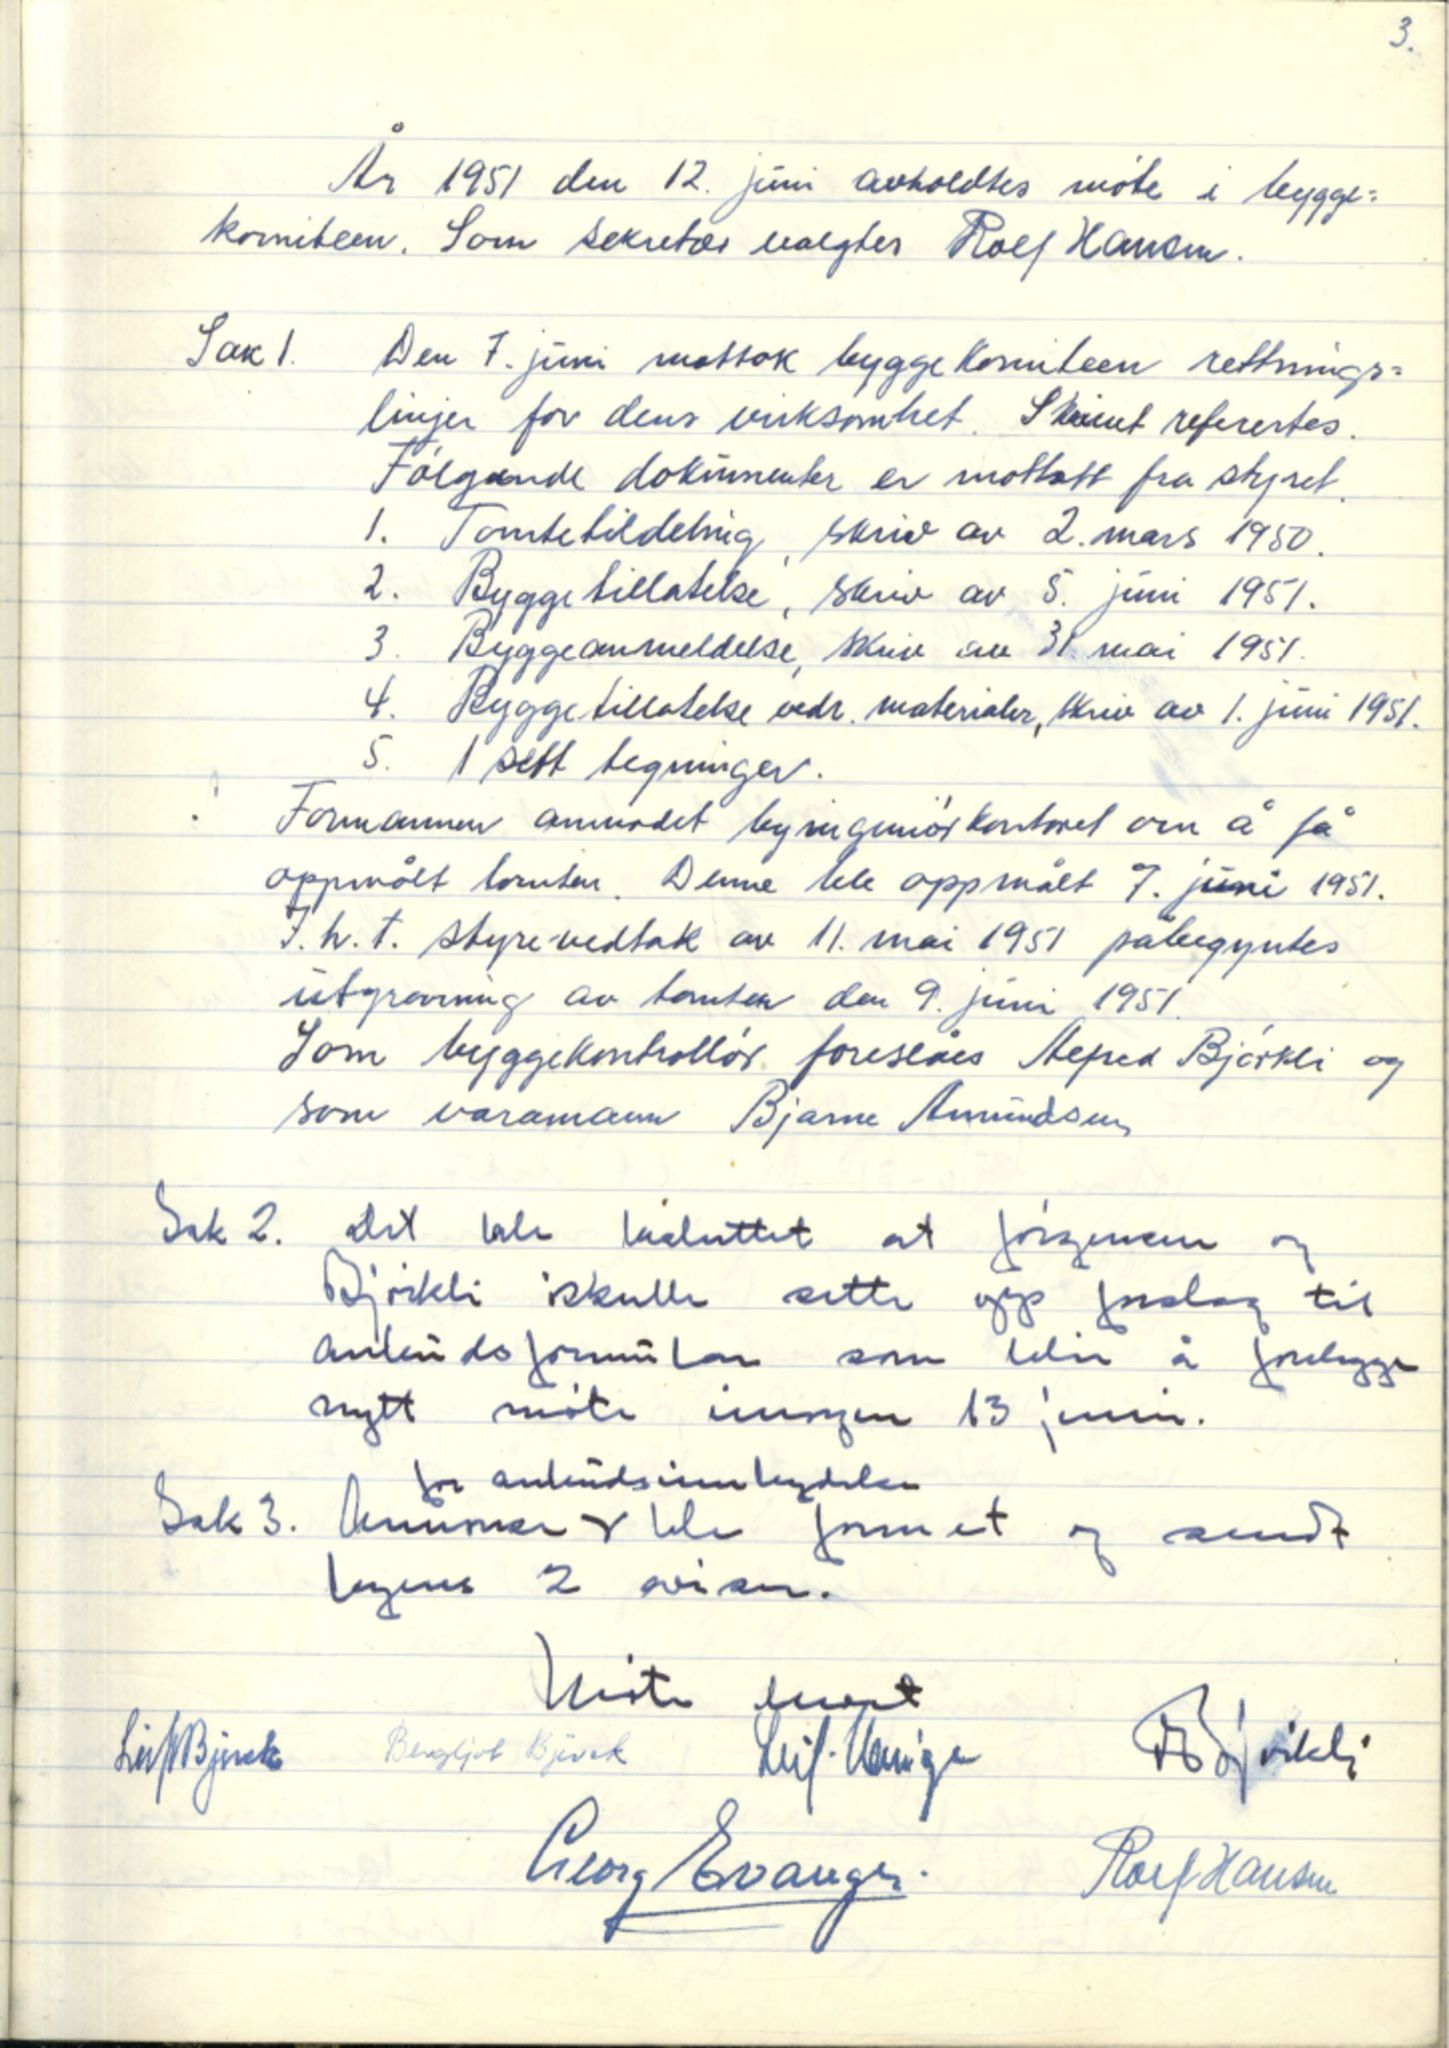 3.
År 1951 den 12. juni avholdtes möte i bygge=
komiteen. Som sekretær valgtes Rolf Hansen.
Sak 1. Den 7. juni mottok byggekomiteen rettnings=
linjer for dens virksomhet. Skrivet referertes.
Fölgende dokumenter er mottatt fra styret.
1. Tomtetildeling, skriv av 2. mars 1950.
2. Byggetillatelse, skriv av 5. juni 1951.
3. Byggeanmeldelse, skriv av 31. mai 1951.
4. Byggetillatelse vedr. materialer, skriv av 1. juni 1951.
5. 1 sett tegninger.
Formannen anmodet byingeniörkontoret om å få
oppmålt tomten. Denne ble oppmålt 7. juni 1951.
I.h.t. styrevedtak av 11. mai 1951 påbegyntes
utgravning av tomten den 9. juni 1951.
Som byggekontrollör foreslåes Alfred Björkli og
som varamann Bjarne Amundsen
Sak 2. Det ble besluttet at Jörgensen og
Björkli skulle sette opp forslag til
anbudsformular som blir å forelegge
nytt möte imorgen 13 juni.
for anbudsinnbydelse
Sak 3. Annonse ble formet og sendt
byens 2 aviser.
Möte hevet
Leif Björck Bergljot Björck Leif Björkli
Georg Evanger. Rolf Hansen